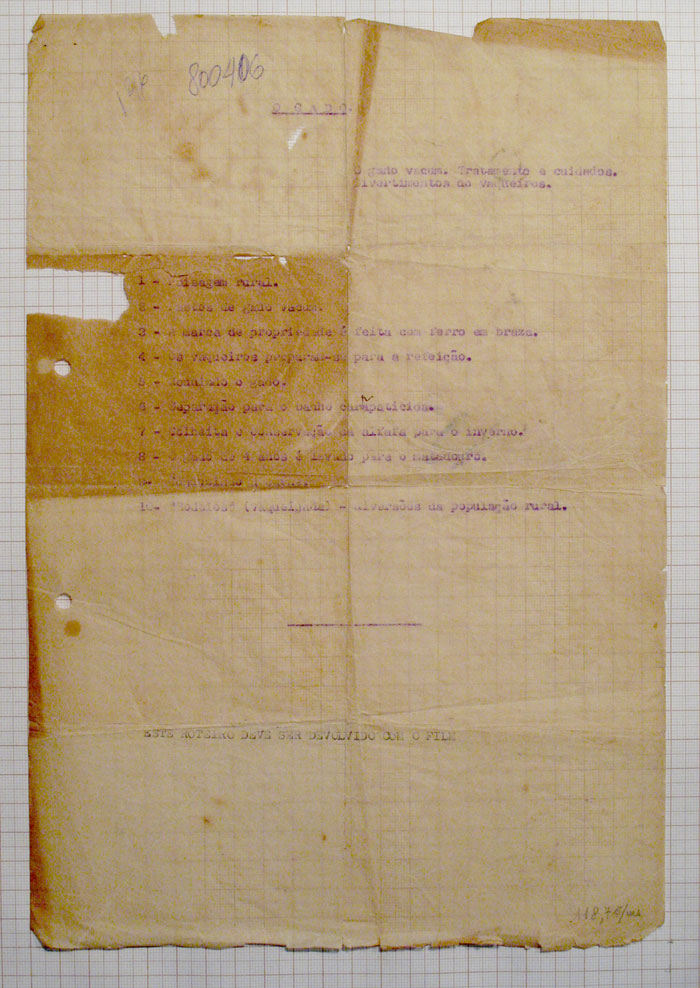 800406
O GADO.
O gado vacum. Tratamento e cuidados.
Divertimentos do vaqueiros.
1 - Paisagem rural.
2 - Pastos de gado vacum.
3 - A marca de propriedade é feita com ferro em braza.
4 - Os vaqueiros preparam-se para a refeição.
5 - o gado.
6 - Separação para o banho carapaticida.
7 - Colheita e conservação da alfafa para o inverno.
8 - O gado de 4 anos é levado para o matadouro.
9-
10- (Vaqueijada) - diversões da população rural.
ESTE ROTEIRO DEVE SER DEVOLVIDO COM O FILM